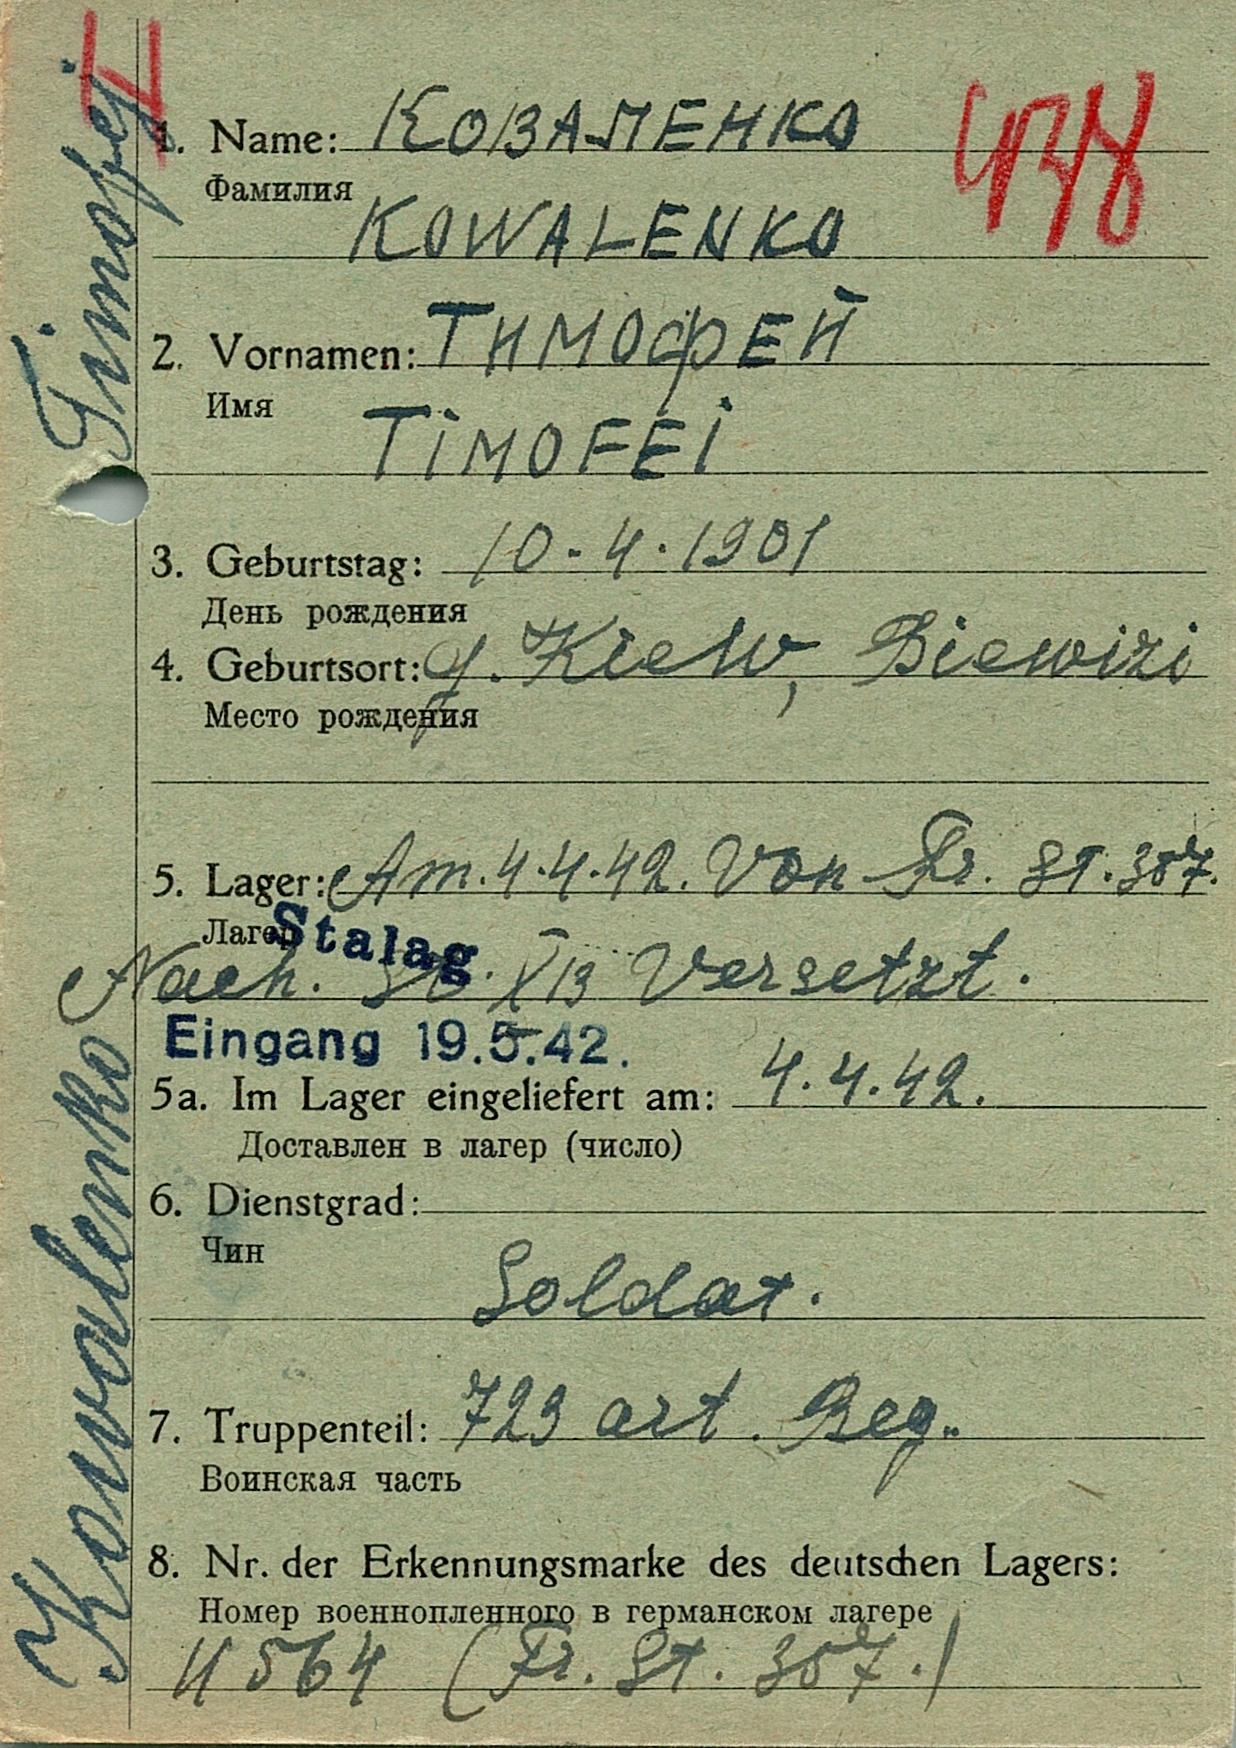 1. Name: КОВАЛЕНКО
Фамилия
KOWALENKO
2. Vornamen: ТИМОФЕЙ
Имя
TiMOFEi
3. Geburtstag: 10-4.1901
День рождения
4. Geburtsort: g. Kiew, Biewizi
Место рождения
5. Lager: Am. 4.4.42. Von Fr. St. 307.
Лагер
Stalag
Nach. St. XB Versetzt.
Eingang 19.5.42.
5a. Im Lager eingeliefert am: 4.4.42.
Доставлен в лагер (число)
6. Dienstgrad:
Чин
Soldat.
7. Truppenteil: 723 art. Reg.
Воинская часть
8. Nr. der Erkennungsmarke des deutschen Lagers:
Номер военнопленного в германском лагере
11564 (Fr. St. 307.)
Kowalenko Timofej